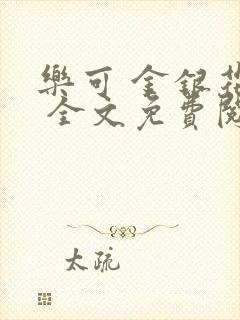 樂可 金銀花
全文免費閱
太疏